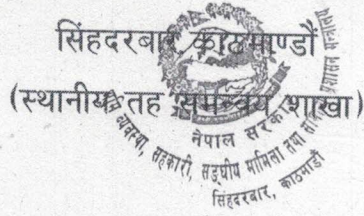 सिंहदरबार, काठमाण्डौं
(स्थानीय तह समन्वय शाखा)
नेपाल सरकार
व्यवस्था, सहकारी, सङ्घीय मामिला तथा
प्रशासन मन्त्रालय
सिंहदरबार, काठमाडौं